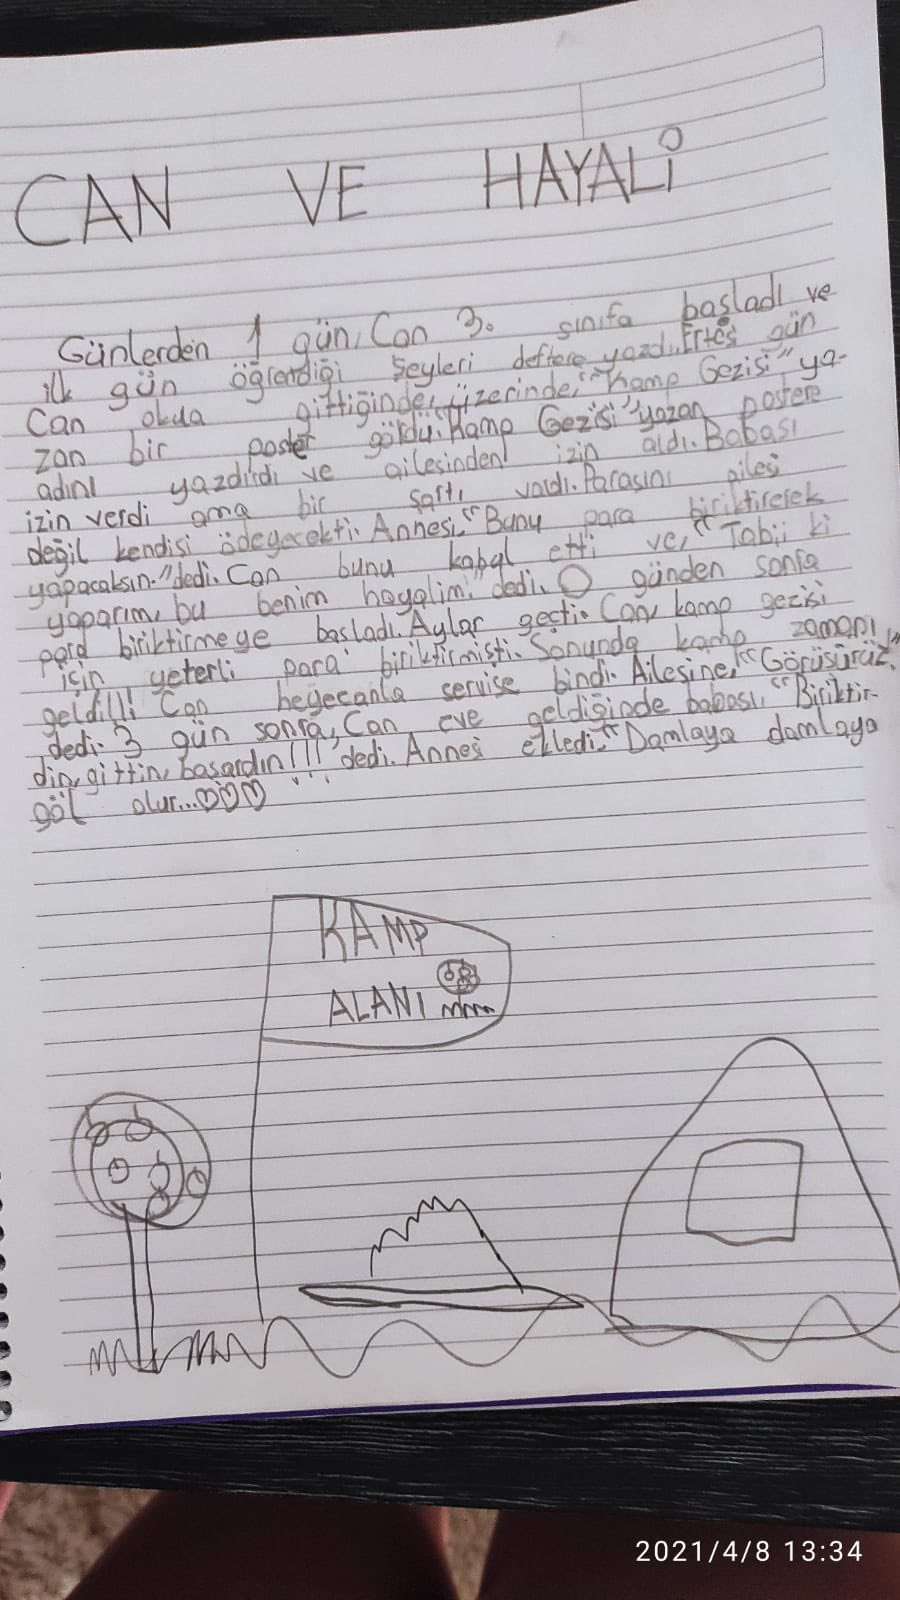 CAN VE HAYALİ
Günlerden 1 gün, Can 3. sınıfa başladı ve
ilk gün öğrendiği şeyleri deftere yazdı. Ertesi gün
Can okula gittiğinde, üzerinde, "Kamp Gezisi" ya-
zan bir poster gördü. "Kamp Gezisi" yazan postere
adını yazdırdı ve ailesinden izin aldı. Babası
izin verdi ama bir şartı vardı. Parasını ailesi
değil kendisi ödeyecekti. Annesi, "Bunu para biriktirerek
yapacaksın." dedi. Can bunu kabul etti ve, "Tabii ki
yaparım, bu benim hayalim." dedi. O günden sonra
para biriktirmeye başladı. Aylar geçti. Can, kamp gezisi
için yeterli para biriktirmişti. Sonunda kamp zamanı
geldi!!! Can heyecanla servise bindi. Ailesine, "Görüşürüz!"
dedi. 3 gün sonra, Can eve geldiğinde babası, "Biriktir-
din, gittin, başardın!!!" dedi. Annesi ekledi: "Damlaya damlaya
göl olur...♡♡♡
KAMP
ALANI
2021/4/8 13:34